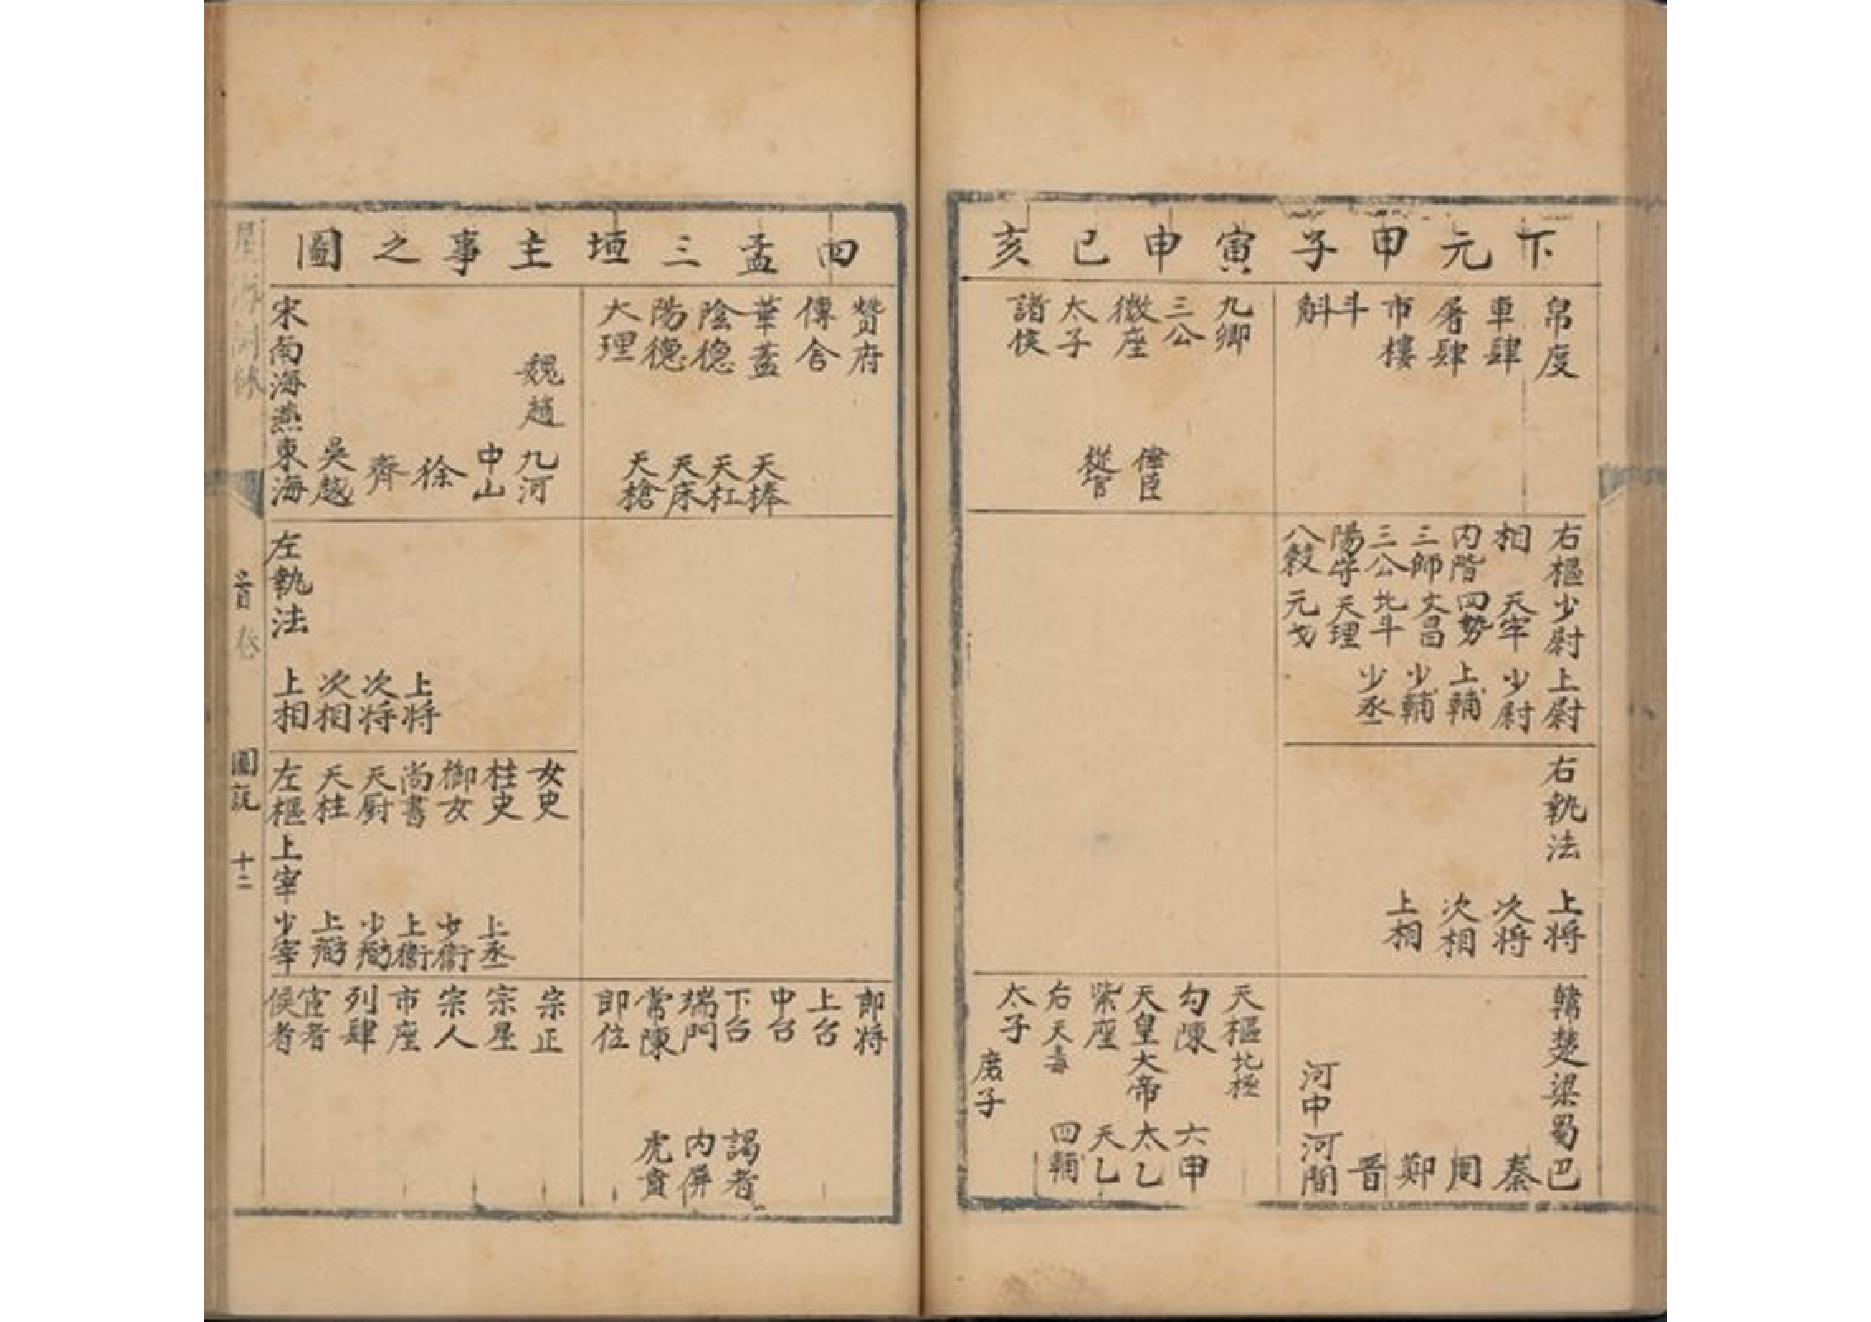 下元甲子寅申巳亥
帛度
車肆
屠肆
市樓
斗
斛
九卿
三公
微座
太子
諸侯
從官
右樞少尉上尉
相天牢少尉
內階四勢上輔
三師文昌少輔
三公北斗少丞
陽守天理
八穀元戈
右執法上将
次将
次相
上相
韓楚梁蜀巴
秦
周
鄭
晋
河中河間
天樞北極
勾陳六甲
天皇大帝太乙
紫座天乙
四輔
太子
庶子
四孟三垣主事之圖
贊府
傳舍
華蓋
陰德
陽德
大理
天棒
天杠
天床
天槍
魏趙九河
中山
徐
齊
吳越
宋南海燕東海
左執法上相
次相
次将
上将
女史
柱史
御女
尚書
天厨
天柱
左樞上宰少宰
上弼
少弼
上衛
少衛
上丞
郎将
上台
中台
下台謁者
端門內屏
常陳虎賁
郎位
宗正
宗星
宗人
市座
列肆
宦者
侯者
首卷
圖說
十二